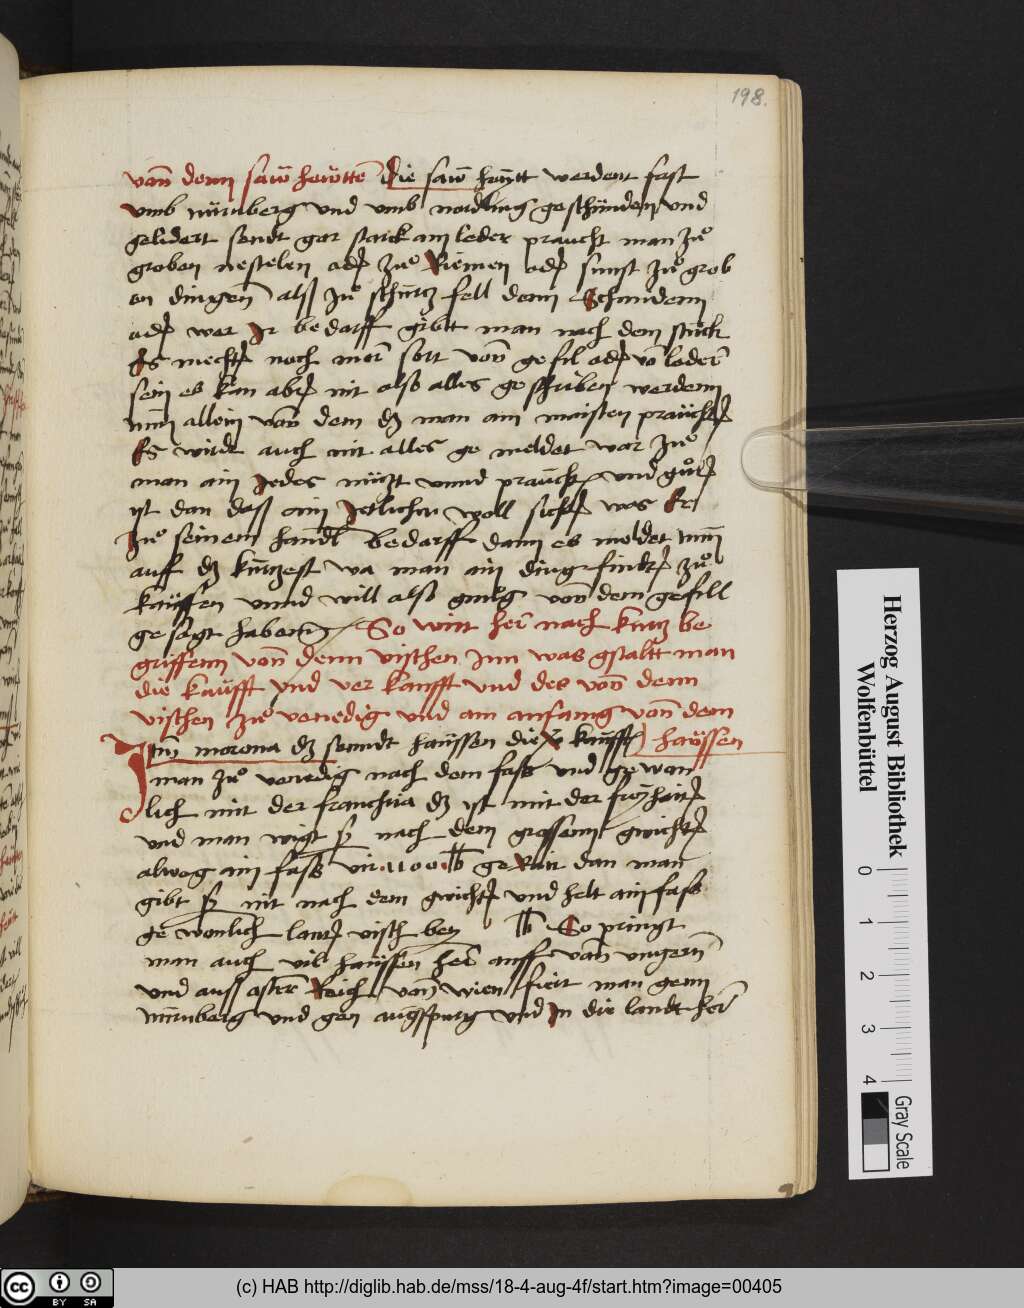 198.
vonn denn saw hewtten die saw heytt werdent fast
vmb nürnberg vnd vmb nördling geschünden vnd
gelidert sendt gar starck am leder praucht man zuo
groben nestelen oder zuo Riemen oder sunst zuo grob
en dingen als zuo schurtz fell denn Schmidenn
oder wer Ir bedarff gibtt man nach dem stuck
Es mecht noch mer sort vonn gefil oder vo leder
sein es kan aber nit also alles geschriben werdenn
nun allein von dem dz man am maisten praucht
Es wirdt auch nit alles ge meldet war zuo
man ain Jedes nützt vnnd praucht vnd guot
ist dan das ain Jetlicher woll sicht was Er
zuo seinem handl bedarff dann es meldet nun
auff dz kurtzest wa man ain ding findt zuo
kauffen vnnd will also gnug von dem gefill
gesagt habenn So wirt her nach kurtz be
griffenn vonn denn vischen Inn was gstaltt man
die kaufft vnd ver kaufft vnd des vonn denn
vischen zuo venedig vnd am anfanng vonn dem
Inn morona dz senndt haussen die kaufft haussen
man zuo venedig nach dem fass vnd gewon
lich mit der franchita dz ist mit der freyhaitt
vnd man wigt sy nach dem grossenn gwicht
alweg ain fass vir 1100 lb gerait dan man
gibt sy nit nach dem gwicht vnd helt ain fass
ge wonlich lautt visch bey lb So pringt
man auch vil haussen her auff von vngern
vnd auss oster Reich von wien fiert man genn
nürnberg vnd gen augspurg vnd In die landt her
Herzog August Bibliothek
Wolfenbüttel
0 1 2 3 4
Gray Scale
cc BY SA
(c) HAB http://diglib.hab.de/mss/18-4-aug-4f/start.htm?image=00405